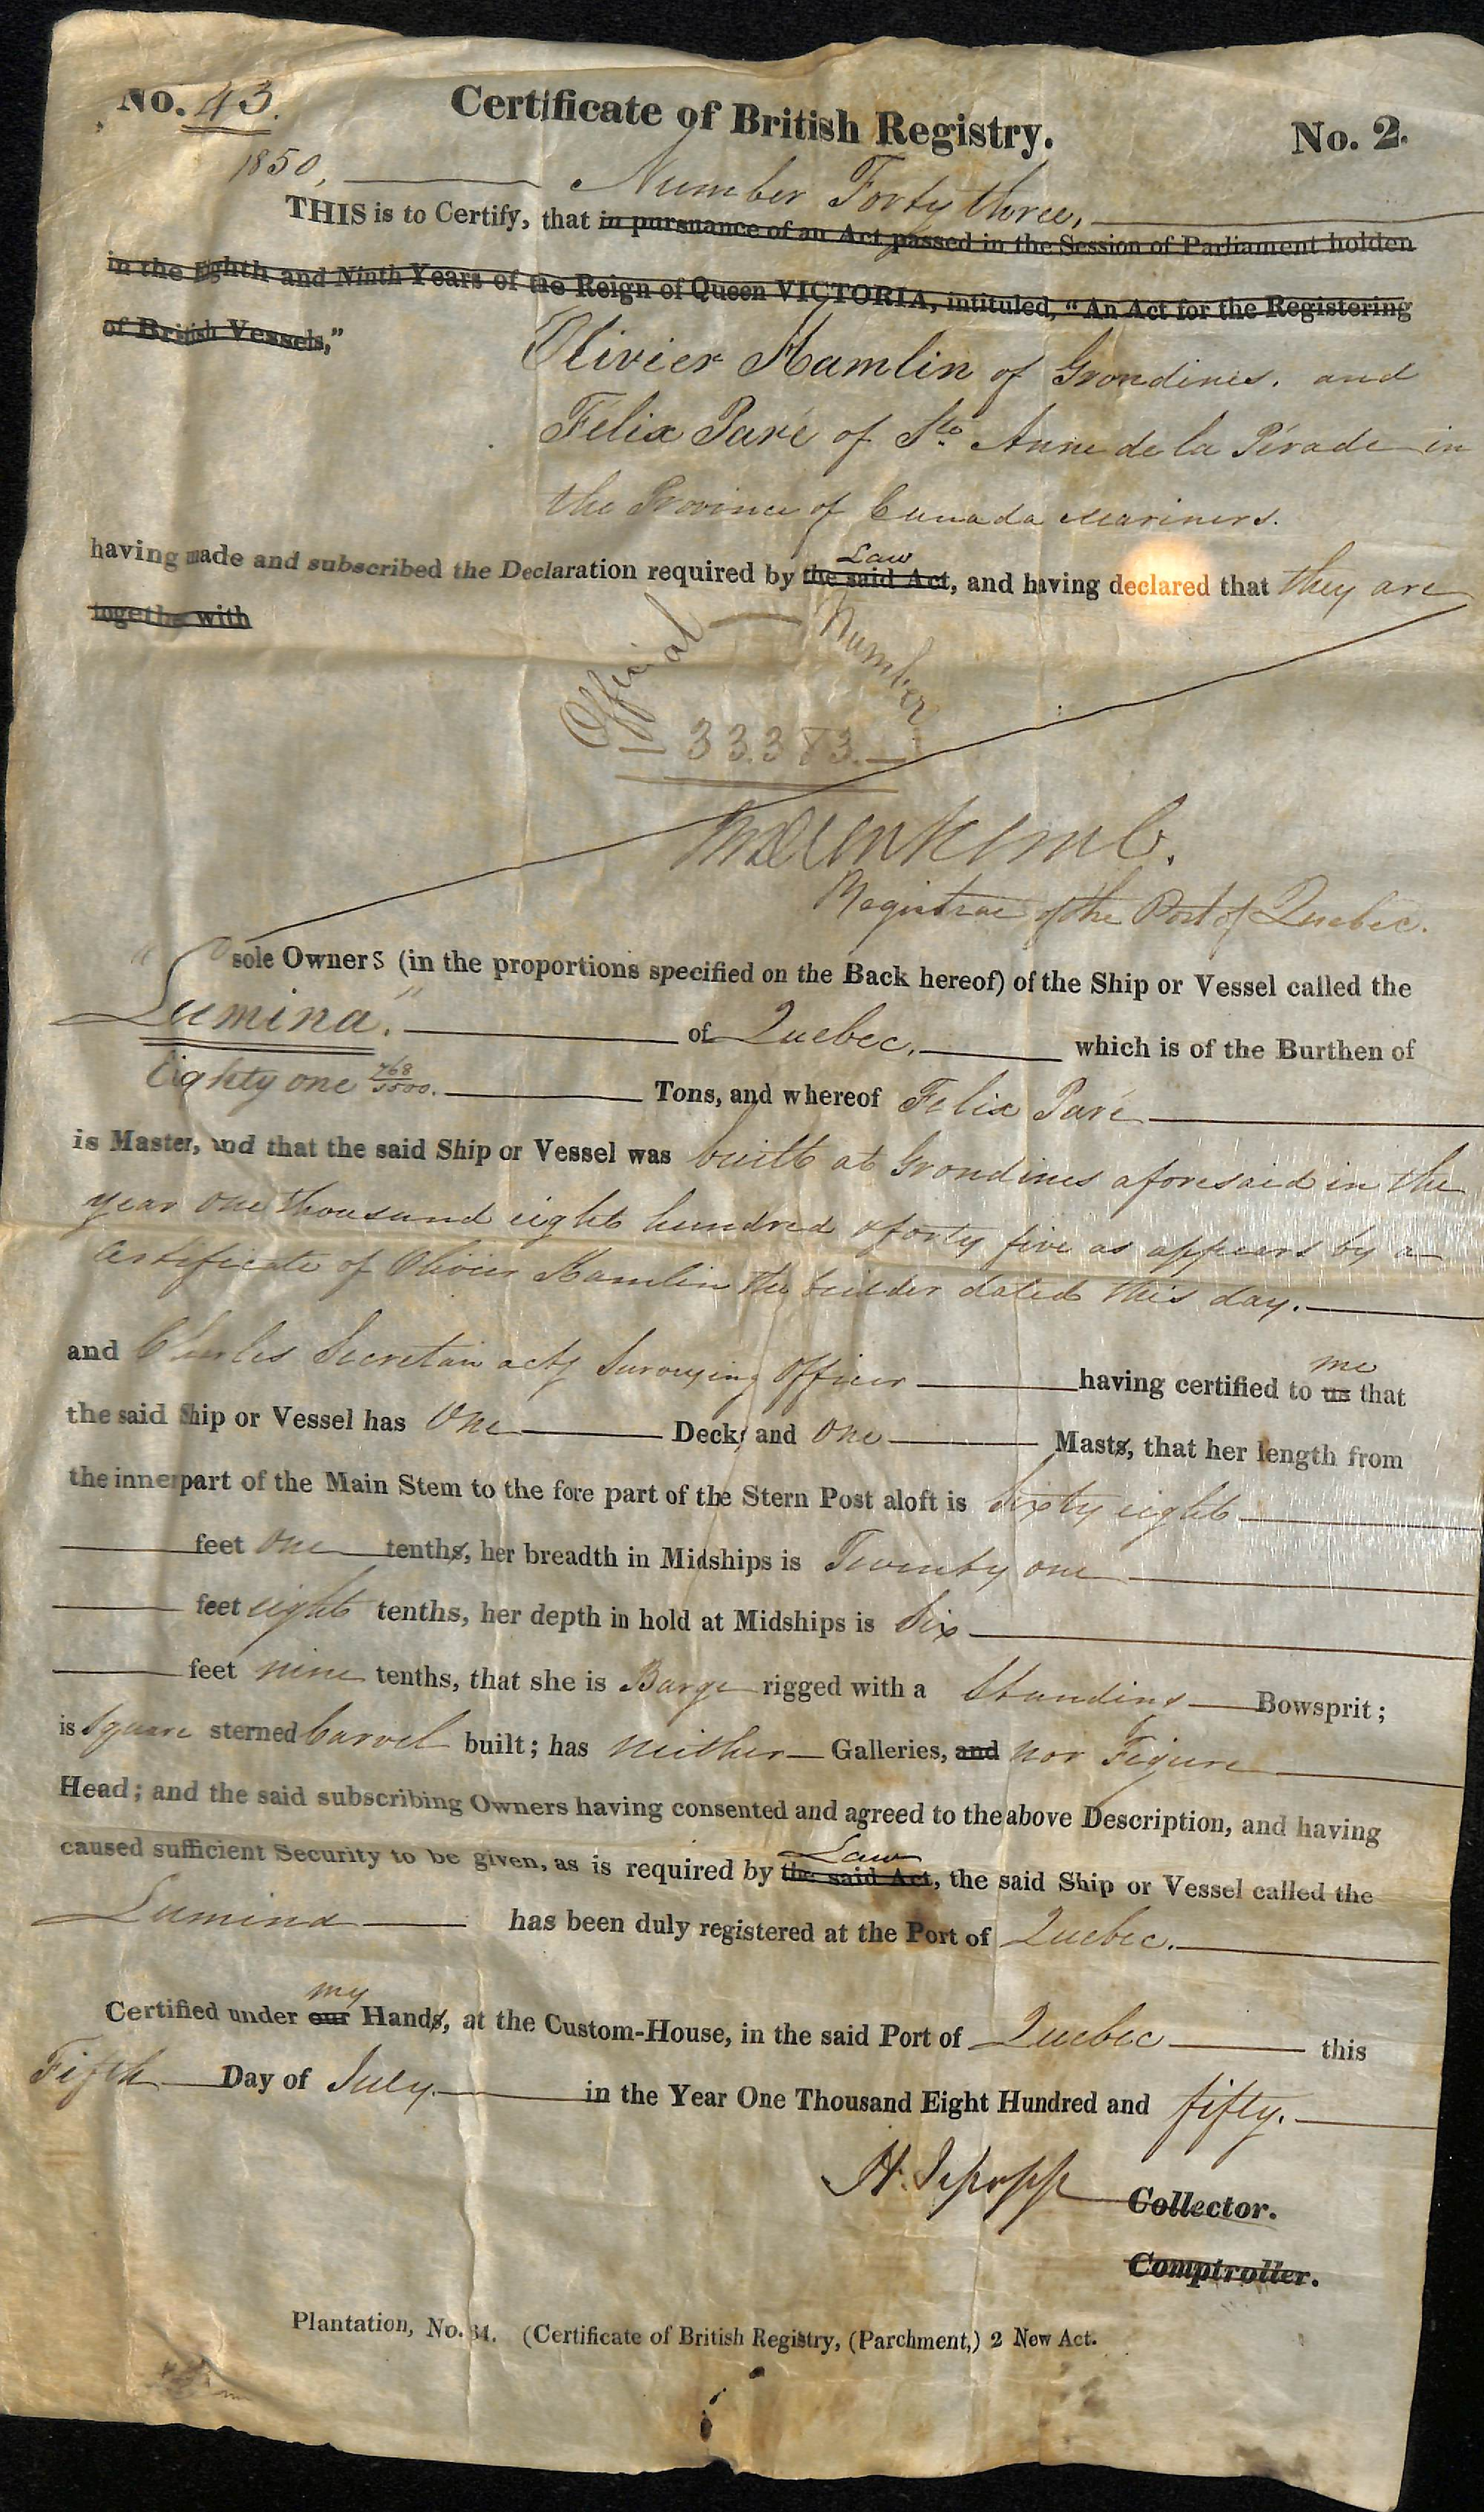 No. 43. Certificate of British Registry. No. 2.
1850, Number Forty three,
THIS is to Certify, that in pursuance of an Act passed in the Session of Parliament holden
in the Eighth and Ninth Years of the Reign of Queen VICTORIA, intituled, "An Act for the Registering
of British Vessels,"
Olivier Hamlin of Grondines. and
Felix Paré of Ste. Anne de la Pérade in
the Province of Canada Mariners.
Law
having made and subscribed the Declaration required by the said Act, and having declared that they are
together with
Official Number
33.383.
Registrar of the Port of Quebec.
sole Owners (in the proportions specified on the Back hereof) of the Ship or Vessel called the
"Lumina." of Quebec. which is of the Burthen of
Eighty one 468/3500. Tons, and whereof Felix Paré
is Master, and that the said Ship or Vessel was built at Grondines aforesaid in the
year one thousand eight hundred & forty five as appears by a
Certificate of Olivier Hamlin the builder dated this day.
me
and Charles Secretan actg Surveying Officer having certified to us that
the said Ship or Vessel has One Deck, and one Masts, that her length from
the inner part of the Main Stem to the fore part of the Stern Post aloft is Sixty eight
feet one tenths, her breadth in Midships is Twenty one
feet eight tenths, her depth in hold at Midships is Six
feet nine tenths, that she is Barge rigged with a Standing Bowsprit;
is Square sterned Carvel built; has neither Galleries, and nor Figure
Head; and the said subscribing Owners having consented and agreed to the above Description, and having
Law
caused sufficient Security to be given, as is required by the said Act, the said Ship or Vessel called the
Lumina has been duly registered at the Port of Quebec.
my
Certified under our Hands, at the Custom-House, in the said Port of Quebec this
Fifth Day of July in the Year One Thousand Eight Hundred and fifty.
H. Jessopp Collector.
Comptroller.
Plantation, No. 34. (Certificate of British Registry, (Parchment,) 2 New Act.